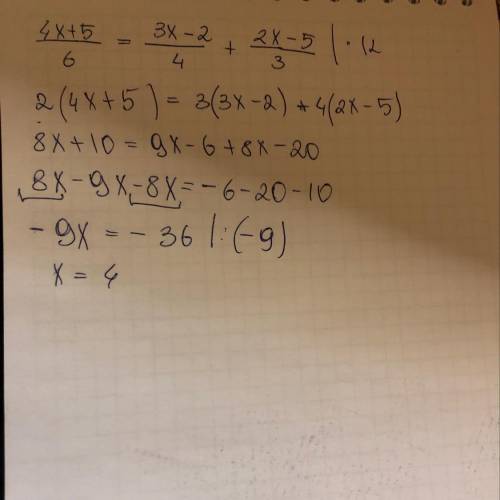 (4x+5)/6 = (3x-2)/4 + (2x-5)/3 | · 12
2(4x+5) = 3(3x-2) + 4(2x-5)
8x+10 = 9x-6+8x-20
8x-9x-8x = -6-20-10
-9x = -36 |:(-9)
x = 4